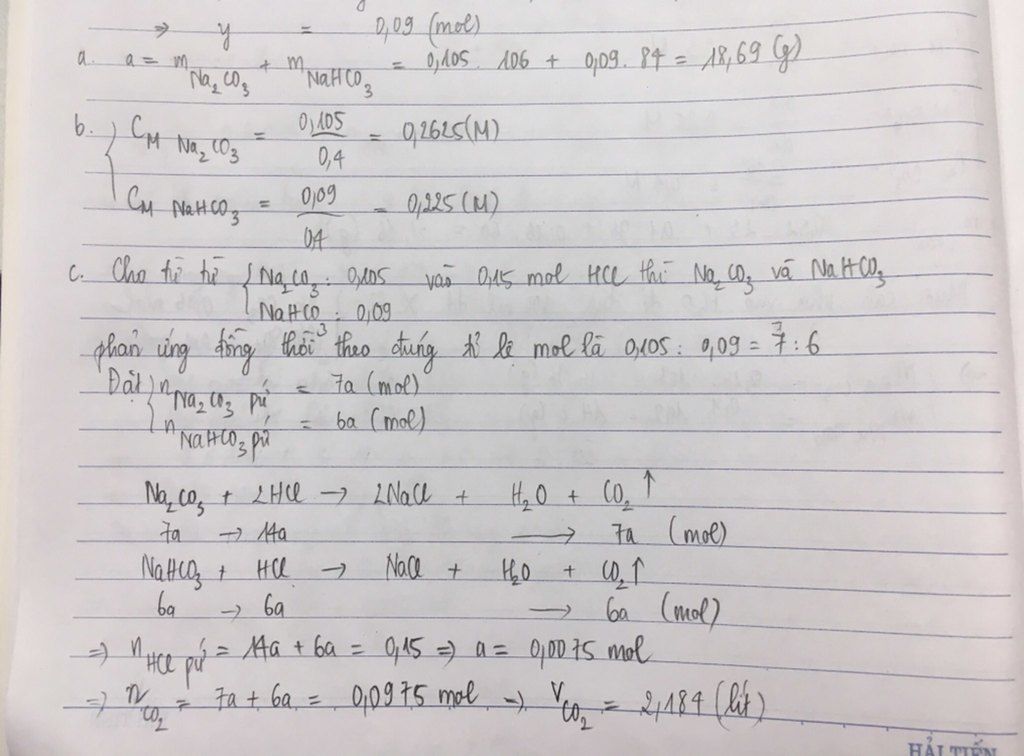 ⇒ y = 0,09 (mol)
a. a = m Na₂CO₃ + m NaHCO₃ = 0,105. 106 + 0,09. 84 = 18,69 (g)
b. { C_M Na₂CO₃ = 0,105/0,4 = 0,2625 (M)
C_M NaHCO₃ = 0,09/0,4 = 0,225 (M)
c. Cho từ từ { Na₂CO₃ : 0,105 vào 0,15 mol HCl thì Na₂CO₃ và NaHCO₃
NaHCO₃ : 0,09
phản ứng đồng thời theo đúng tỉ lệ mol là 0,105 : 0,09 = 7 : 6
Đặt { n Na₂CO₃ pứ = 7a (mol)
n NaHCO₃ pứ = 6a (mol)
Na₂CO₃ + 2HCl → 2NaCl + H₂O + CO₂ ↑
7a → 14a → 7a (mol)
NaHCO₃ + HCl → NaCl + H₂O + CO₂ ↑
6a → 6a → 6a (mol)
⇒ n HCl pứ = 14a + 6a = 0,15 ⇒ a = 0,0075 mol
⇒ n CO₂ = 7a + 6a = 0,0975 mol → V CO₂ = 2,184 (lít)
HẢI TIẾN